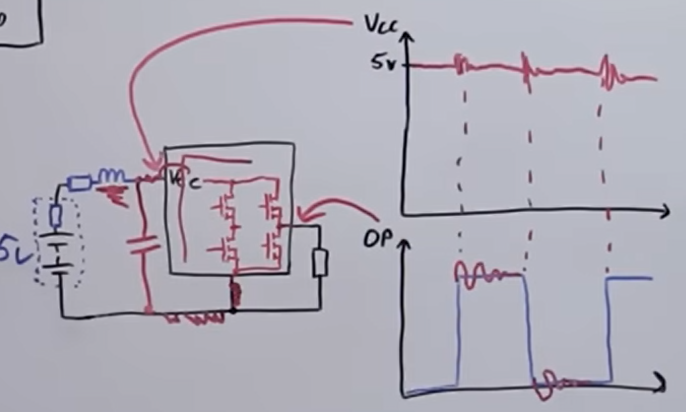 Vcc
5v
Vcc
5v
OP